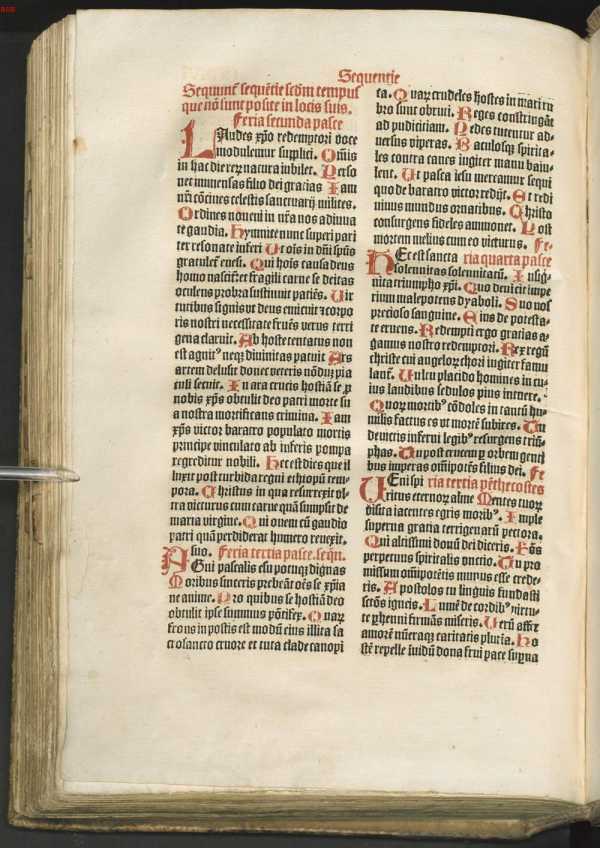 Sequentie
Sequunt᷑ sequētie scḋm tempus
que nō sunt posite in locis suis.
Feria secunda pasce
LAudes xp̄o redemptori voce
modulemur supplici. Om̄is
in hac die rex natura iubilet. Perso
net immensas filio dei gratias Iam
nr̄i cōcines celestis sanctuarij milites.
Ordines noueni in nr̄a nos adiuua
te gaudia. Hymnite nunc superi pari
ter resonate inferi Ut oīs in dn̄i spūs
gratulet᷑ euesi. Qui hoīs causa deus
homo nascit᷑ et fragili carne se deitas
oculens probra sustinuit patiēs. Uir
tutibus signis vt deus emicuit ⁊ corpo
ris nostri necessitate fruēs verus terri
gena claruit. Ab hoste tentatus non
est agnitꝰ neqꝫ diuinitas patuit Ars
artem delusit donec veteris nōdum pia
culi secuit. In ara crucis hostiā se ꝓ
nobis xp̄s obtulit deo patri morte su
a nostra mortificans crimina. Iam
xp̄s victor baratro populato mortis
principe vinculato ab inferis pompa
regreditur nobili. Hec est dies que il
luxit post turbida regni ethiopū tem-
pora. Christus in qua resurrexit vl-
tra victurus cum carne quā sumpsit de
maria virgine. Qui ouem cū gaudio
patri quā perdiderat humero reuexit.
Asuo. Feria tertia pasce. seqn̄.
AGni paschalis esu potuqꝫ dignas
Moribus sinceris prebeāt oēs se xp̄ia
ne anime. Pro quibus se hostiā deo
obtulit ipse summus pōtifex. Quaꝝ
frons in postis est modū eius illita sa
crosancto cruore et tuta clade canopi
ca. Quaꝝ crudeles hostes in mari ru
bro sunt obruti. Reges constringāt
ad pudicitiam. Pedes tutentur ad-
uersus viperas. Baculosqꝫ spirita-
les contra canes iugiter manu baiu-
lent. Ut pasca iesu mereamur sequi
quo de baratro victor redijt. En redi
uiuus mundus ornatibus. Christo
consurgens fideles ammonet. Post
mortem melius cum eo victurus. Fe-
ria quarta pasce
HEc est sancta
solennitas solennitatū. Insig-
nita triumpho xp̄i. Quo deuicit impe
rium malepotens dyaboli. Suo nos
precioso sanguine. Eius de potesta-
te eruens. Redempti ergo gratias a-
gamus nostro redemptori. Rex regū
christe cui angeloꝝ chori iugiter famu
lant᷑. Uultu placido homines in tu-
ius laudibus sedulos pius intuere.
Quoꝝ mortibꝰ cōdoles in tantū hu-
milis factus es vt morte subires. Tu
deuictis inferni legibꝰ resurgens triū-
phas. Tu post crucem ꝑ orbem genti
bus imperas om̄ipotēs filius dei. Fe
ria tertia pēthecostes
UEni spi
ritus eternoꝝ alme Mentes tuoꝝ
visita iacentes egris moribꝰ. Imple
superna gratia terrigenarū pectora.
Qui altissimi donū dei diceris. Fōs
perpetuus spiritalis vnctio. Qui pro
missum om̄ipotētis munus esse crede-
ris. Apostolos tu linguis fundasti
secōs igneis. Lumē de cordibꝰ virtu-
te ꝑhenni firmās miseris. Uerū affer
amorē nr̄is atqꝫ caritatis pluria. Ho
stē repelle iuidū dona frui pace supna